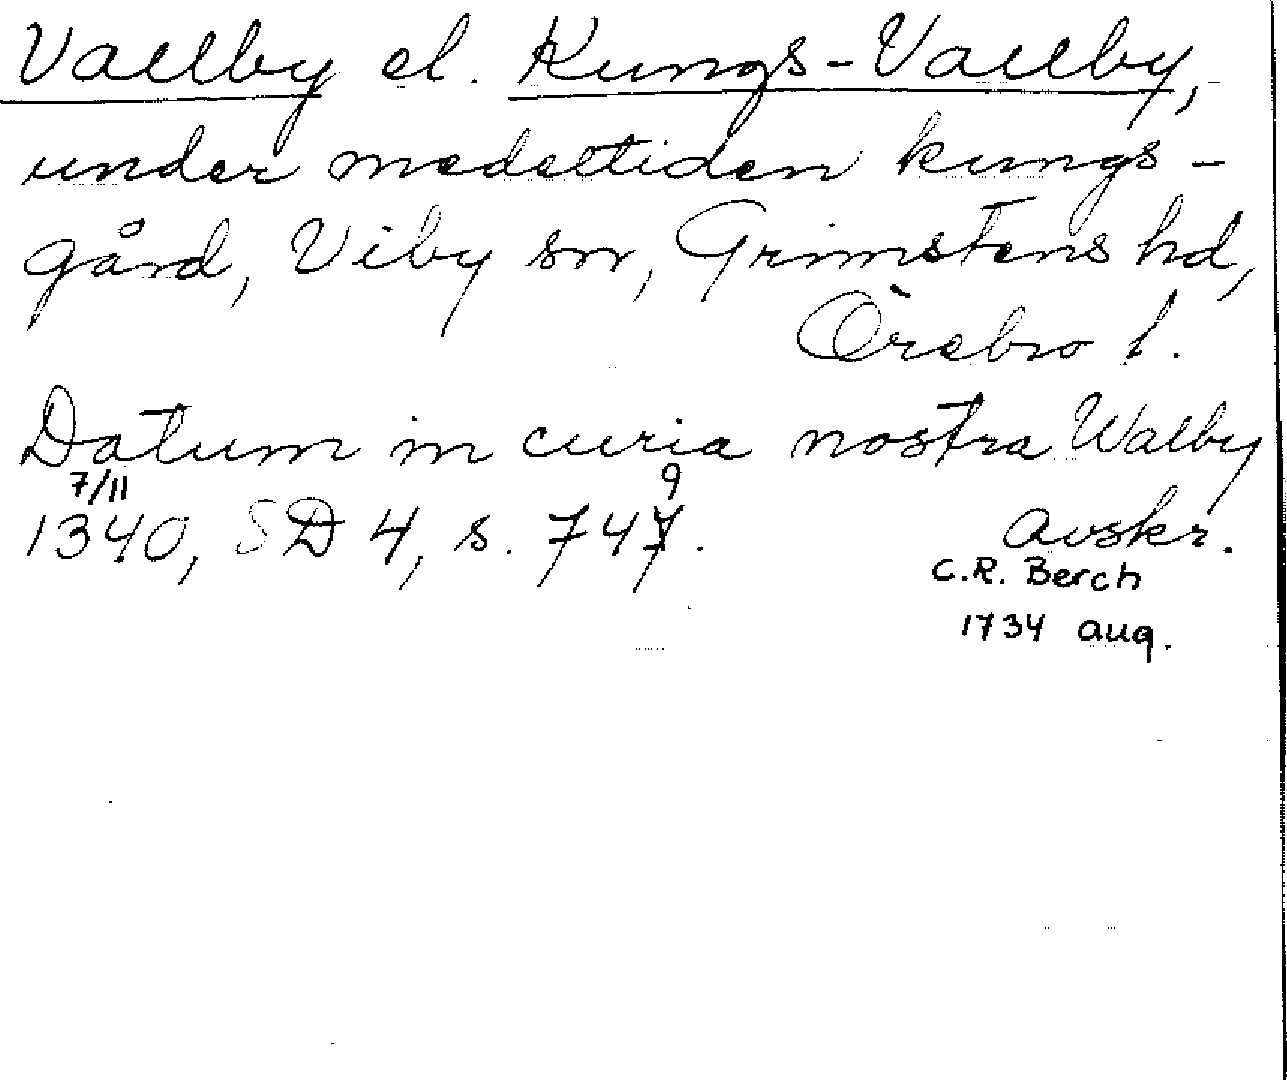 Vallby el. Kungs-Vallby,
under medeltiden kungs-
gård, Viby sn, Grimstens hd,
Örebro l.
Datum in curia nostra Walby
7/11 9
1340, SD 4, s. 747. avskr.
C.R. Berch
1734 aug.